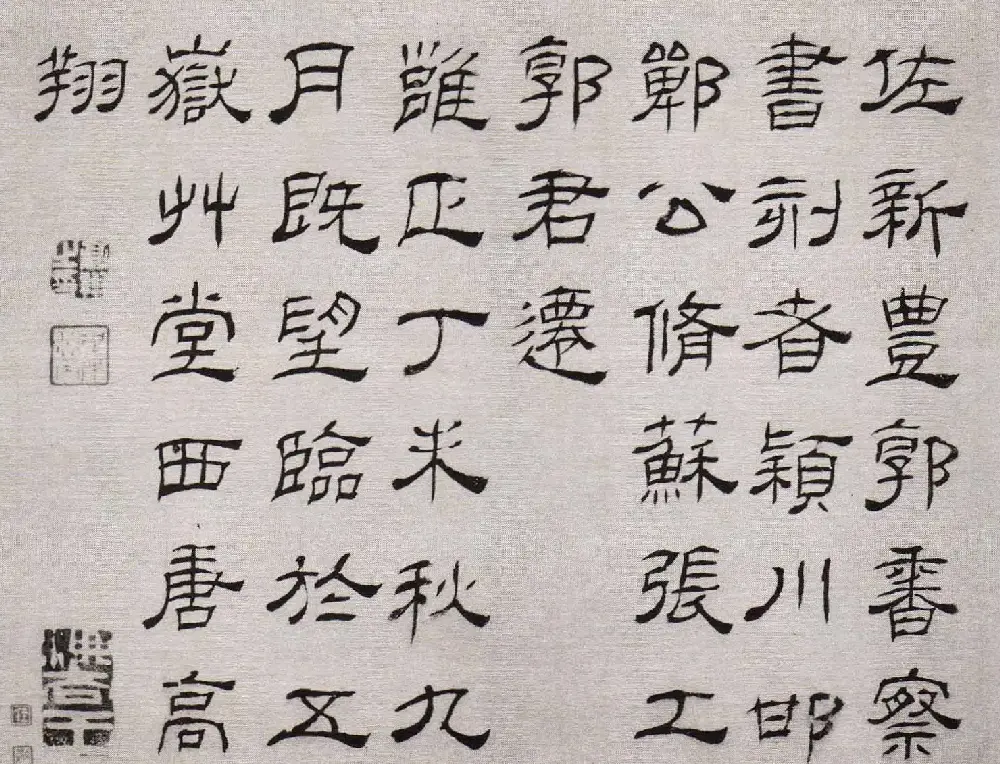 佐新豊郭香察
書刻者穎川邯
鄲公脩蘇張工
郭君遷
雝正丁未秋九
月既望臨於五
嶽艸堂西唐高
翔